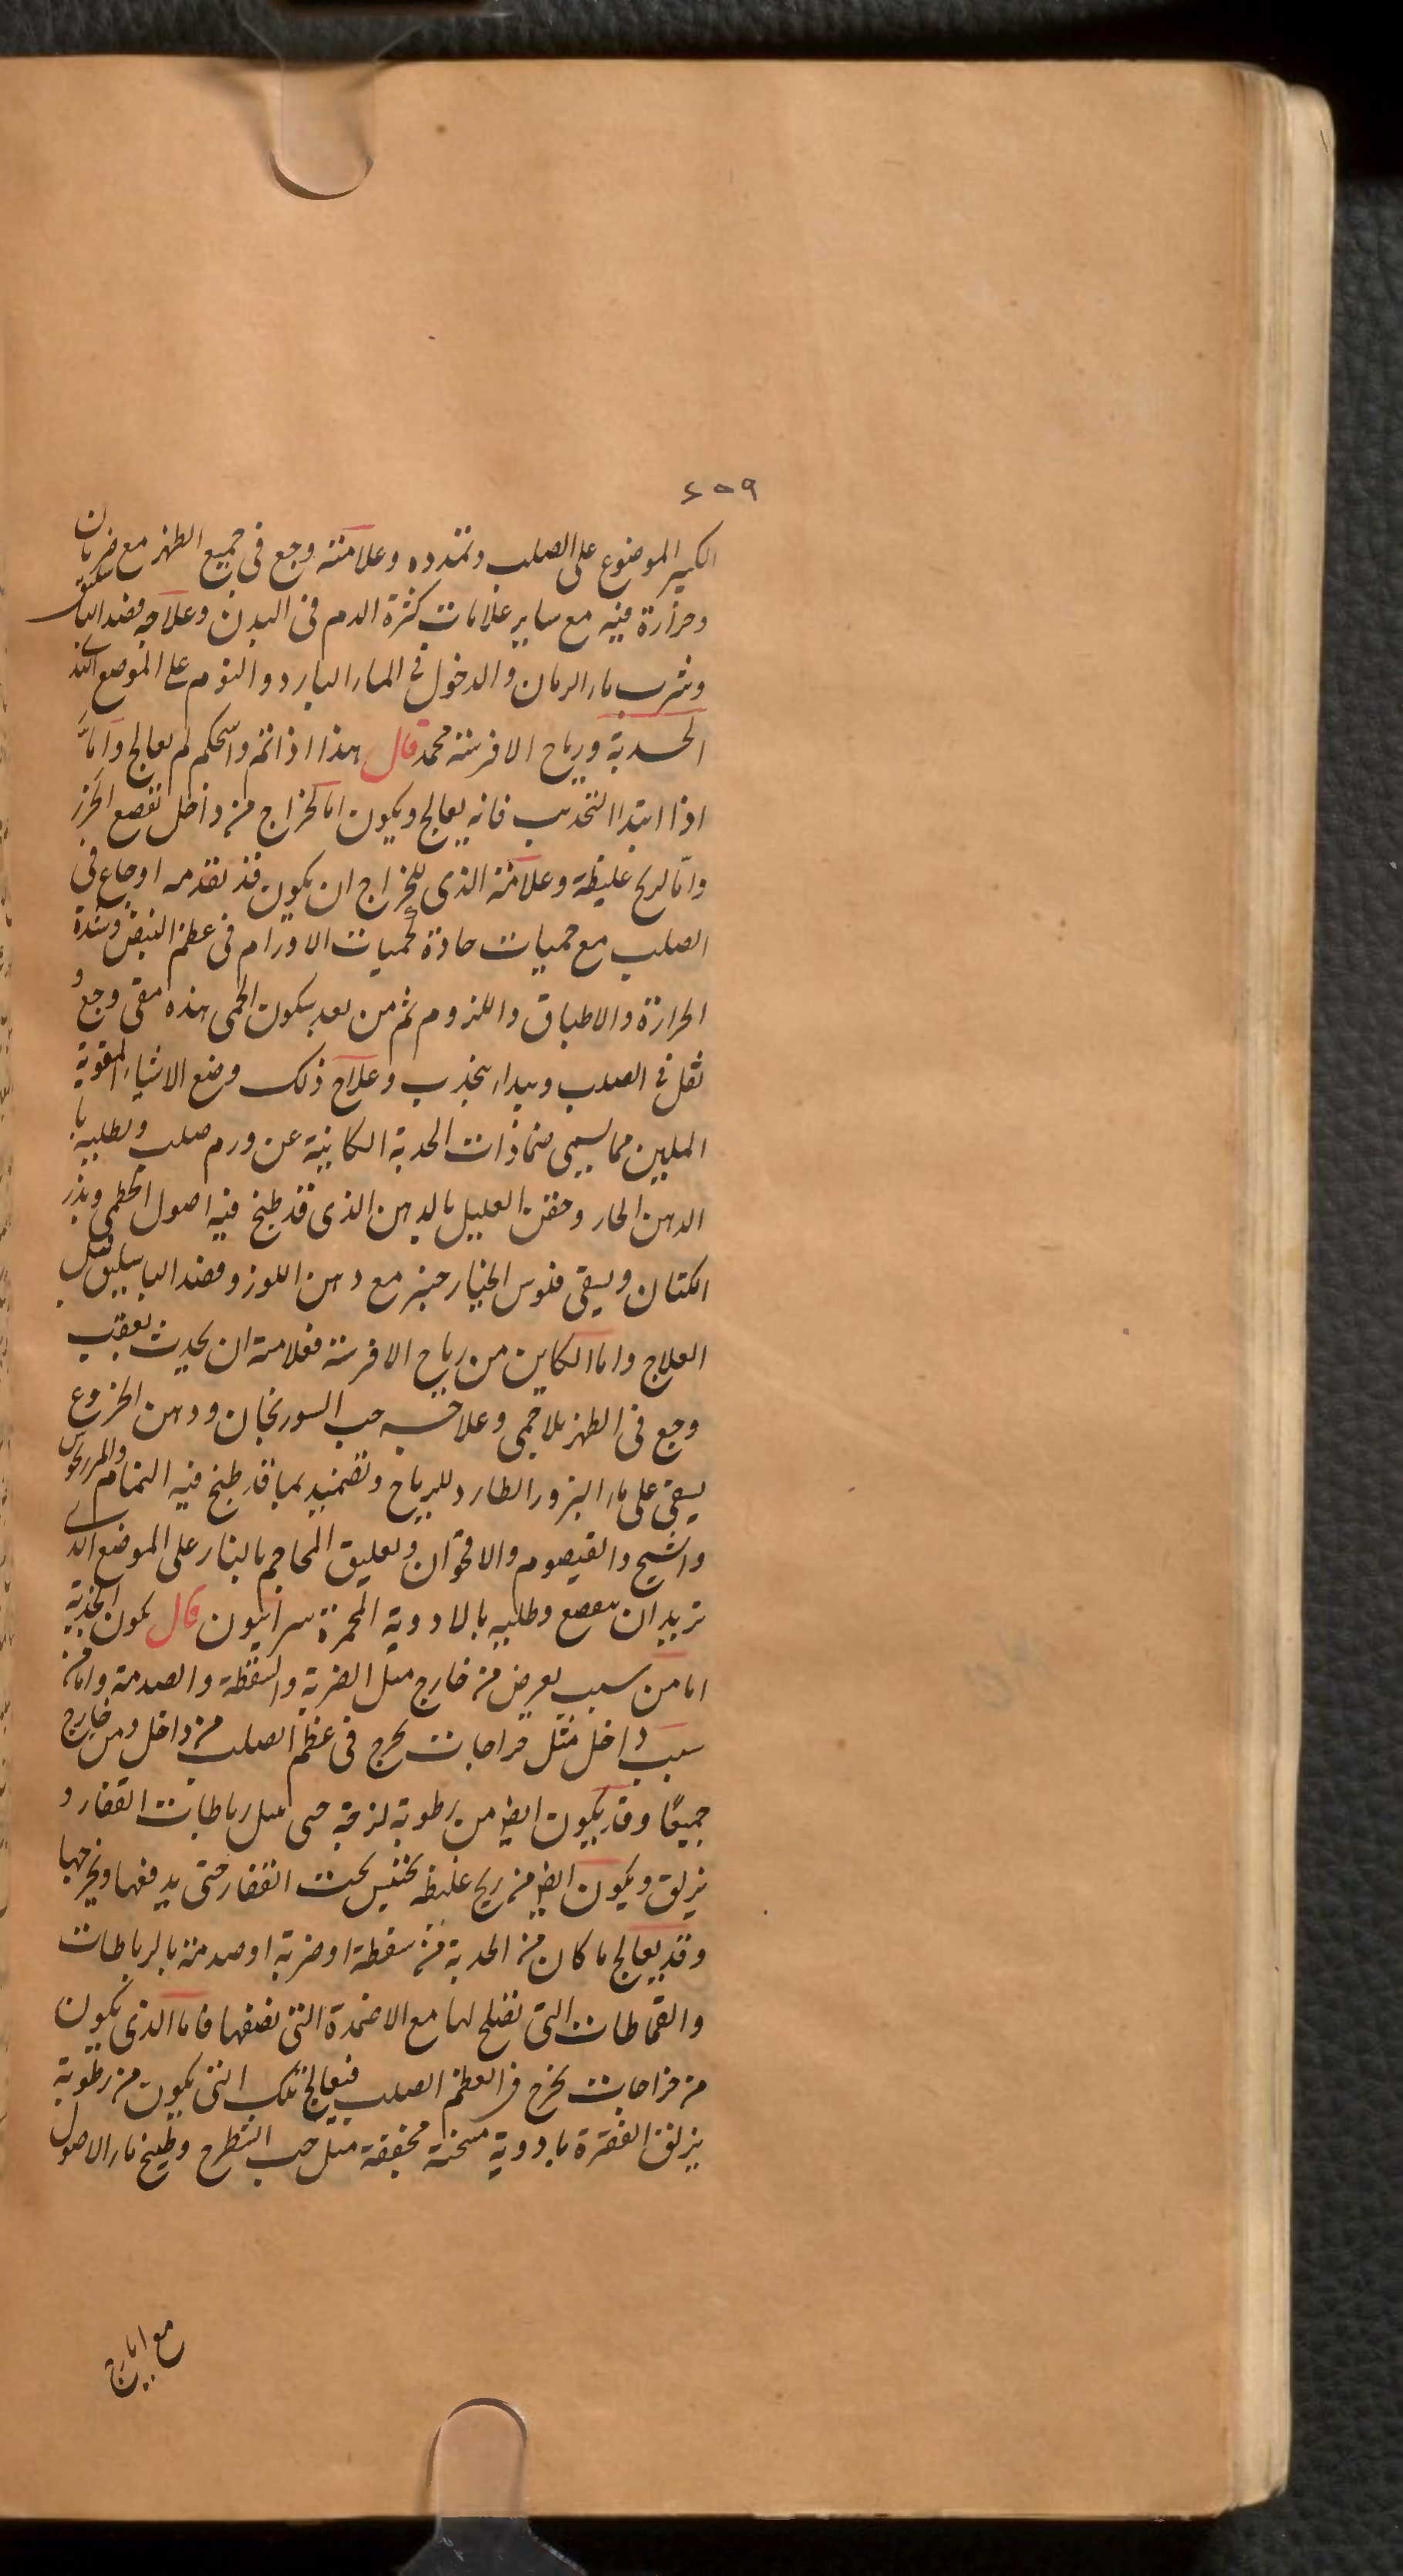 ٤٥٩
الكبير الموضوع على الصلب وتمدده وعلامته وجع فى جميع الظهر مع ضربان
وحرارة فيه مع ساير علامات كثرة الدم فى البدن وعلاجه فصد الباسليق
وشرب ماء الرمان والدخول فى الماء البارد والنوم على الموضع الند
الحدبة ورياح الافرسة محمد قال هذا اذا تم واستحكم لم يعالج واما
اذا ابتدا التحديب فانه يعالج ويكون اما لخراج من داخل تقصع الخرز
واما لريح غليظة وعلامة الذى للخراج ان يكون قد تقدمه اوجاع فى
الصلب مع حميات حادة كحميات الاورام فى عظم النبض وشدة
الحرارة والاطباق واللزوم ثم من بعد سكون الحمى هذه مقى وجع و
ثقل فى الصلب ويبدا يتحدب وعلاج ذلك وضع الاشياء المقوية
المليين مما يسمى ضمادات الحدبة الكاينة عن ورم صلب وتطليه با
الدهن الحار وحقن العليل بالدهن الذى قد طبخ فيه اصول الخطمى وبذر
الكتان ويسقى فلوس الخيار جنبر مع دهن اللوز وفصد الباسليق قبل
العلاج واما الكاين من رياح الافرسة فعلامته ان يحدث بعقب
وجع فى الظهر بلا حمى وعلاجه حب السورنجان ودهن الخروع
يسقى على ماء البزور الطارد للرياح وتضميد بما قد طبخ فيه النمام والمرزنجوش
والشيح والقيصوم والاقحوان وتعليق المحاجم بالنار على الموضع الذى
تريد ان تقصع وطليه بالادوية المحمرة سرابيون قال يكون الحدبة
اما من سبب يعرض من خارج مثل الضربة والسقطة والصدمة واما من
سبب داخل مثل خراجات تخرج فى عظم الصلب من داخل ومن خارج
جميعًا وقد يكون ايض من رطوبة لزجة حتى تبل رباطات الفقار و
يزلق ويكون ايض من ريح غليظه تحتبس تحت الفقار حتى يدفعها ويخرجها
وقد يعالج ما كان من الحدبة من سقطة او ضربة او صدمة بالرباطات
والقماطات التى تصلح لها مع الاضمدة التى نصفها فاما الذى يكون
من خراجات تخرج فى العظم الصلب فيعالج تلك التى يكون من رطوبة
يزلق الفقرة بادوية مسخنة مجففة مثل حب الشطرج وطبخ ماء الاصول
مع ايارج